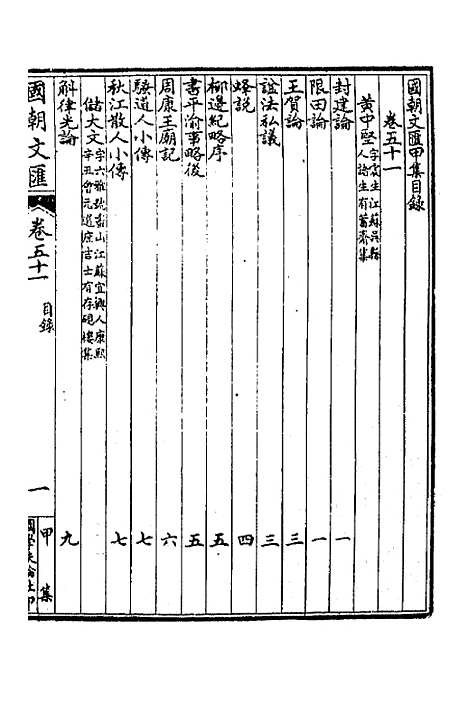 國朝文匯甲集目錄
卷五十一
黃中堅 字震生江蘇吳縣人諸生有蓄齋集
封建論 一
限田論 一
王賀論 三
諡法私議 三
蟓說 四
柳邊紀略序 五
書平渝事略後 五
周康王廟記 六
騷道人小傳 七
秋江散人小傳 七
儲大文 字六雅號畫山江蘇宜興人康熙辛丑會元選庶吉士有存硯樓集
斛律光論 九
國朝文匯 卷五十一 目錄 一 甲集
國學扶輪社印